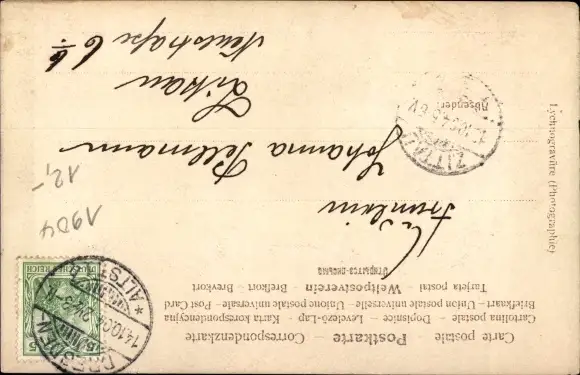 Carte postale
Postkarte — Correspondenzkarte
Cartolina postale — Dopisnice — Levelező-Lap — Karta korrespondencyjna
Briefkaart — Union postale universelle — Unione postale universale — Post Card
Tarjeta postal — Weltpostverein — Brefkort — Brevkort
Открытое письмо
Fräulein
Johanna Pellmann
Zittau
Neustraße 6
Absender
ZITTAU
Lychnogravüre (Photographie)
DEUTSCHES REICH
5
DRESDEN-
*ALTST.
14.10.04
1904
12,-